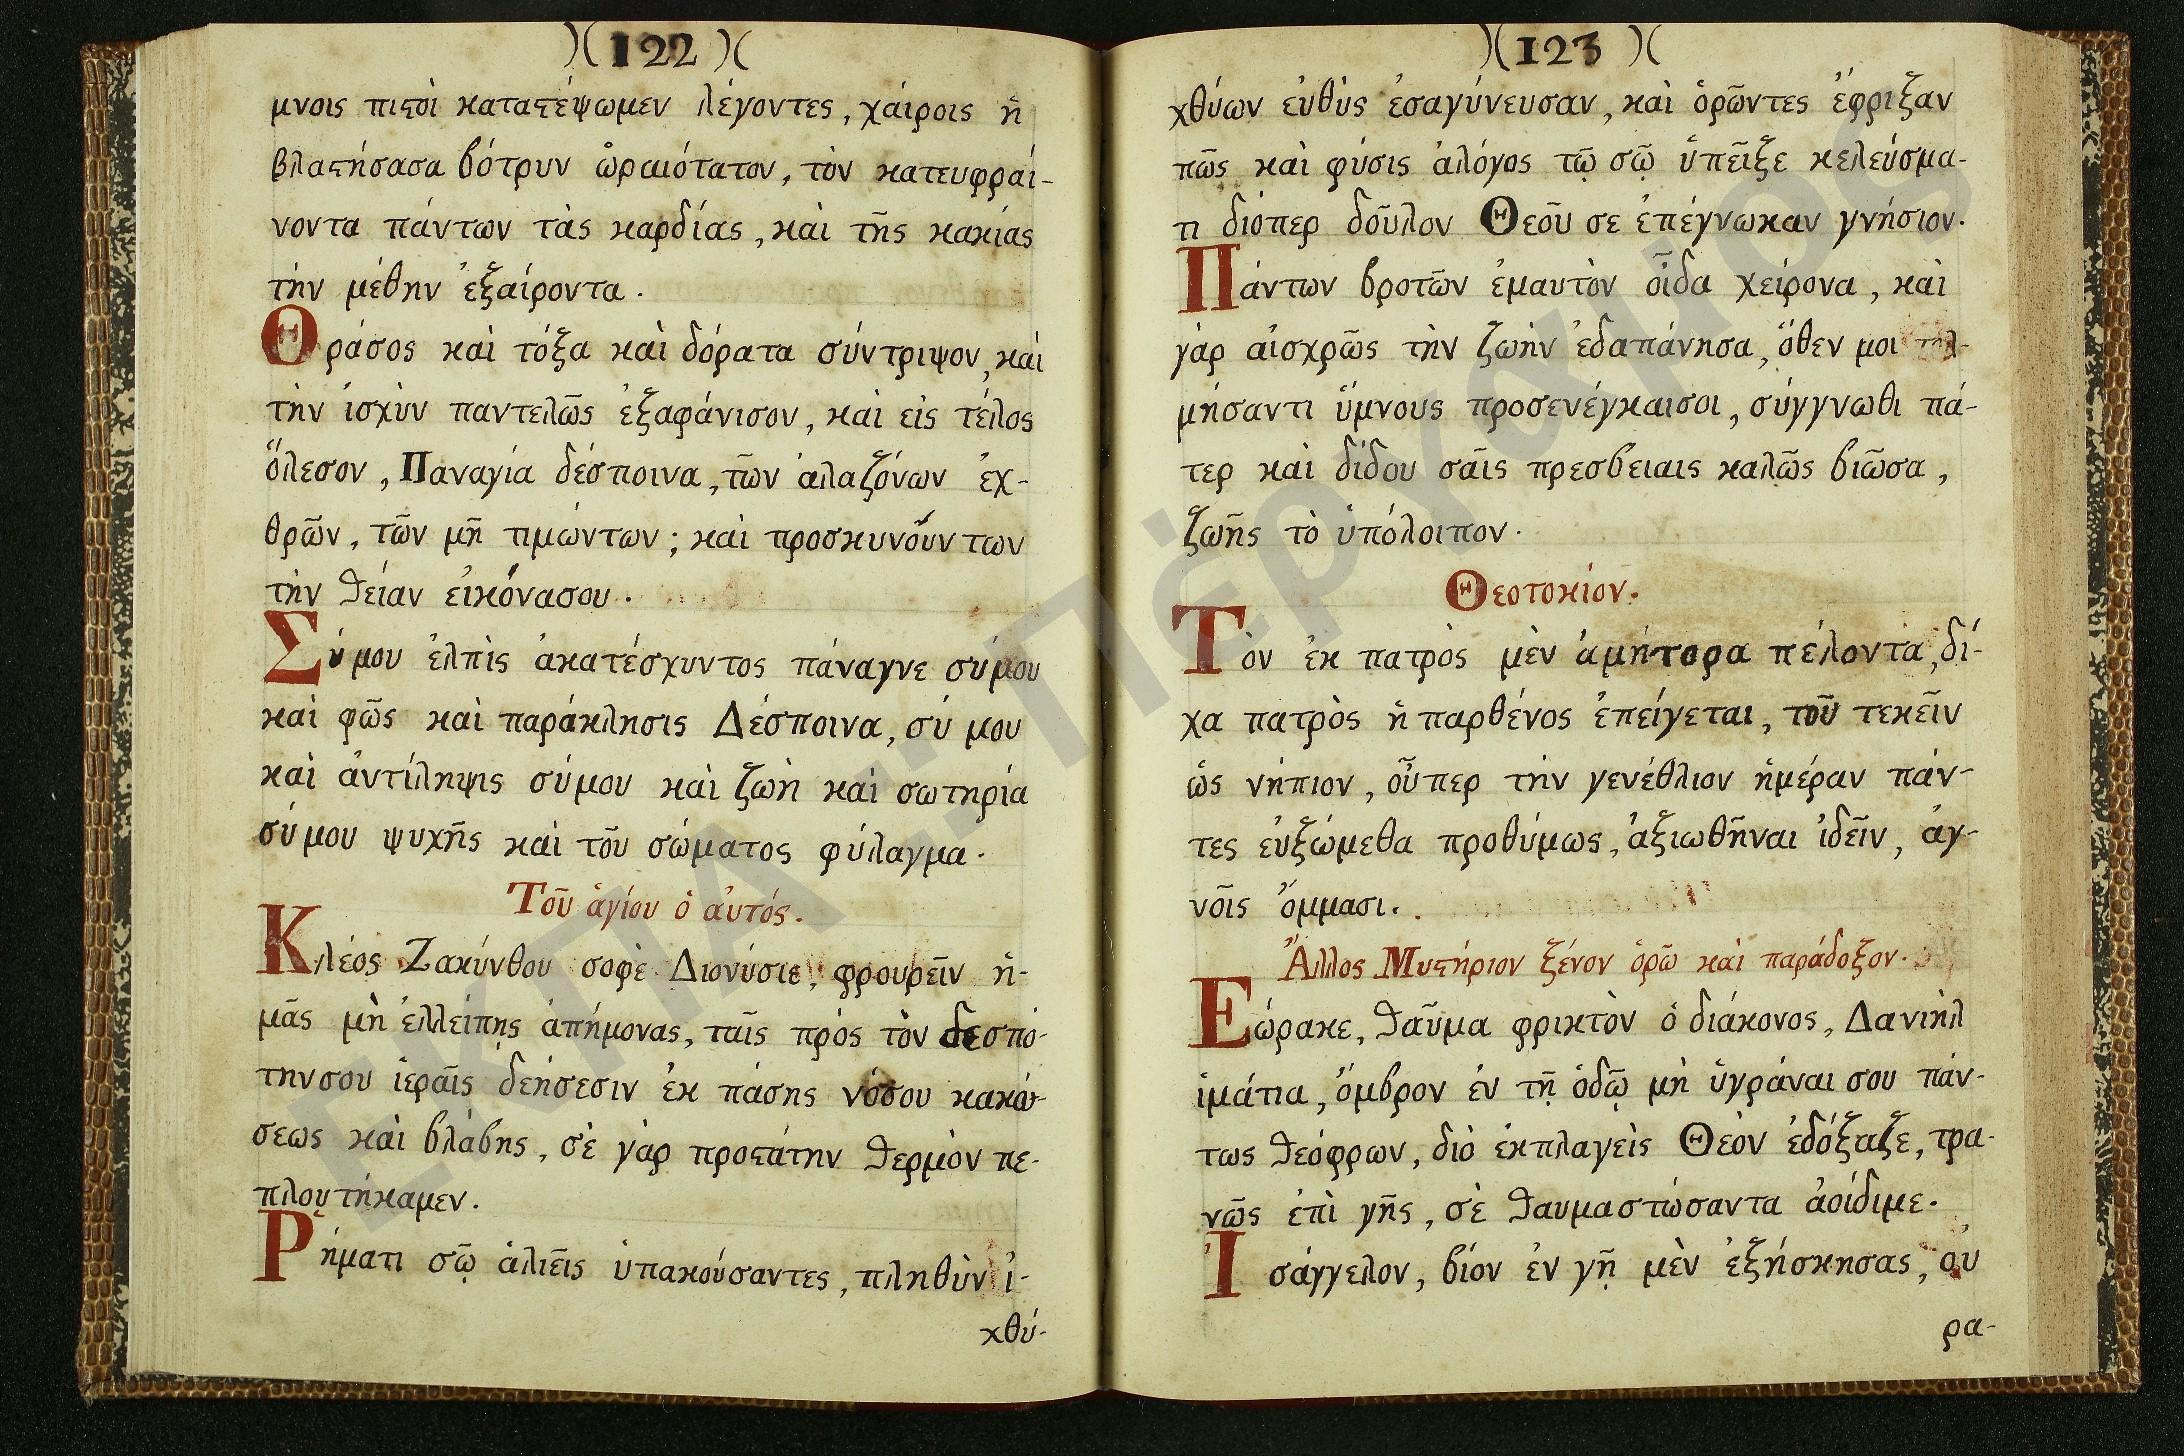 )( 122 )(
μνοις πιϛοὶ καταϛέψωμεν λέγοντες, χάιροις ἡ
βλαϛήσασα βότρυν ὡραιότατον, τὸν κατευφραί-
νοντα πάντων τὰς καρδίας, καὶ τῆς κακίας
τὴν μέθην ἐξαίροντα.
Θράσος καὶ τόξα καὶ δόρατα σύντριψον, καὶ
τὴν ἰσχὺν παντελῶς ἐξαφάνισον, καὶ εἰς τέλος
ὄλεσον, Παναγία δέσποινα, τῶν ἀλαζόνων ἐχ-
θρῶν, τῶν μῆ τιμώντων; καὶ προσκυνοῦντων
τὴν θείαν εἰκόνασου.
Σύ μου ἐλπὶς ἀκατέσχυντος πάναγνε σύ μου
καὶ φῶς καὶ παράκλησις Δέσποινα, σύ μου
καὶ ἀντίληψις σύ μου καὶ ζωὴ καὶ σωτηρία
σύ μου ψυχῆς καὶ τοῦ σώματος φύλαγμα.
Τοῦ ἁγίου ὁ ἀυτός.
Κλέος Ζακύνθου σοφὲ Διονύσιε, φρουρεῖν ἡ-
μᾶς μὴ ἐλλείπῃς ἀπήμονας, ταῖς πρὸς τὸν δεσπό-
τηνσου ἱεραῖς δεήσεσιν ἐκ πάσης νόσου κακώ-
σεως καὶ βλάβης, σὲ γὰρ προϛάτην θερμὸν πε-
πλουτήκαμεν.
Ρήματι σῷ ἁλιεῖς ὑπακούσαντες, πληθὺν ἰ-
χθύ-
)( 123 )(
χθύων εὐθὺς ἐσαγύνευσαν, καὶ ὁρῶντες ἔφριξαν
πῶς καὶ φύσις ἀλόγος τῷ σῷ ὕπεῖξε κελεύσμα-
τι διόπερ δοῦλον Θεοῦ σε ἐπέγνωκαν γνήσιον.
Πάντων βροτῶν ἐμαυτὸν οἶδα χείρονα, καὶ
γὰρ αἰσχρῶς τὴν ζωὴν ἐδαπάνησα, ὅθεν μοι τολ-
μήσαντι ὕμνους προσενέγκαισοι, σύγγνωθι πά-
τερ καὶ δίδου σαῖς πρεσβειαις καλῶς βιῶσα,
ζωῆς τὸ ὑπόλοιπον.
Θεοτοκίον.
Τὸν ἐκ πατρὸς μὲν ἀμήτορα πέλοντα, δί-
χα πατρὸς ἡ παρθένος ἐπείγεται, τοῦ τεκεῖν
ὡς νήπιον, οὗπερ τὴν γενέθλιον ἡμέραν πάν-
τες ἐυξώμεθα προθύμως, ἀξιωθῆναι ἰδεῖν, ἁγ-
νοῖς ὄμμασι.
Ἄλλος Μυϛήριον ξένον ὁρῶ καὶ παράδοξον.
Εώρακε, θαῦμα φρικτὸν ὁ διάκονος, Δανιὴλ
ἱμάτια, ὄμβρον ἐν τῇ ὁδῷ μὴ ὑγράναι σου πάν-
τως θεόφρων, διὸ ἐκπλαγεὶς Θεὸν ἐδόξαζε, τρα-
νῶς ἐπὶ γῆς, σὲ θαυμαστώσαντα ἀοίδιμε.
Ἰσάγγελον, βίον ἐν γῇ μὲν ἐξήσκησας, ὀυ
ρα-
ΕΚΠΑ::Πέργαμος